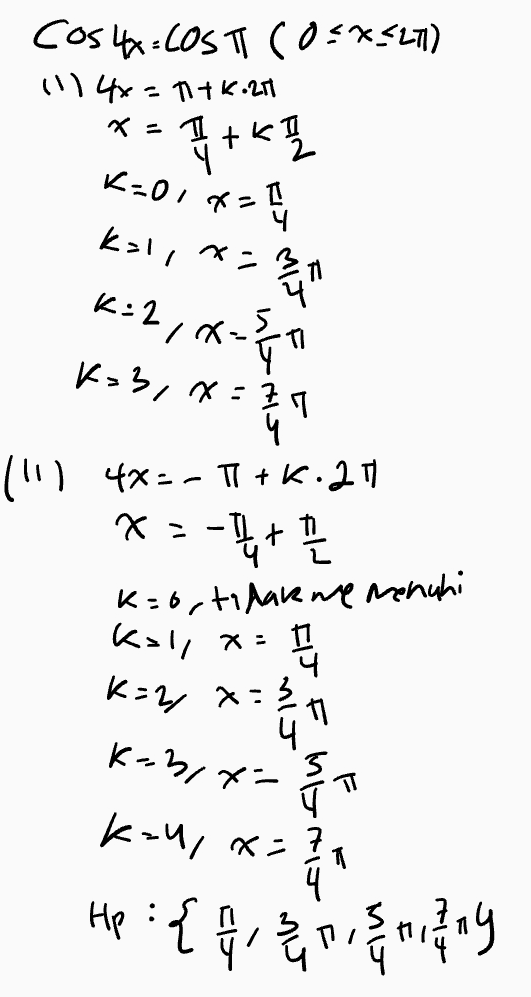 Cos 4x = COS π ( 0 ≤ x ≤ 2π)
(1) 4x = π + k·2π
x = π/4 + k π/2
K=0, x = π/4
k=1, x = 3/4 π
k=2, x = 5/4 π
K=3, x = 7/4 π
(11) 4x = - π + k·2π
x = -π/4 + π/2
k=0, tidak memenuhi
k=1, x = π/4
k=2, x = 3/4 π
k=3, x = 5/4 π
k=4, x = 7/4 π
Hp : { π/4, 3/4 π, 5/4 π, 7/4 π }